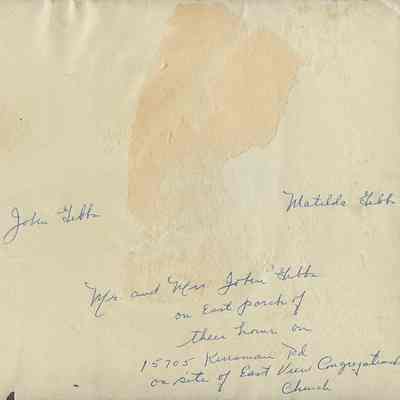 John Gibbs
Matilda Gibbs
Mr. and Mrs. John Gibbs
on East porch of
their home on
15705 Kinsman Rd
on site of East View Congregational
Church